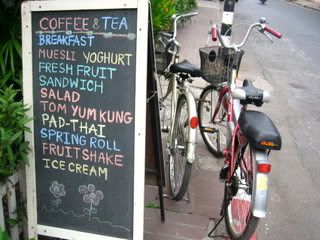 COFFEE & TEA
BREAKFAST
MUESLI YOGHURT
FRESH FRUIT
SANDWICH
SALAD
TOM YUM KUNG
PAD-THAI
SPRING ROLL
FRUITSHAKE
ICE CREAM